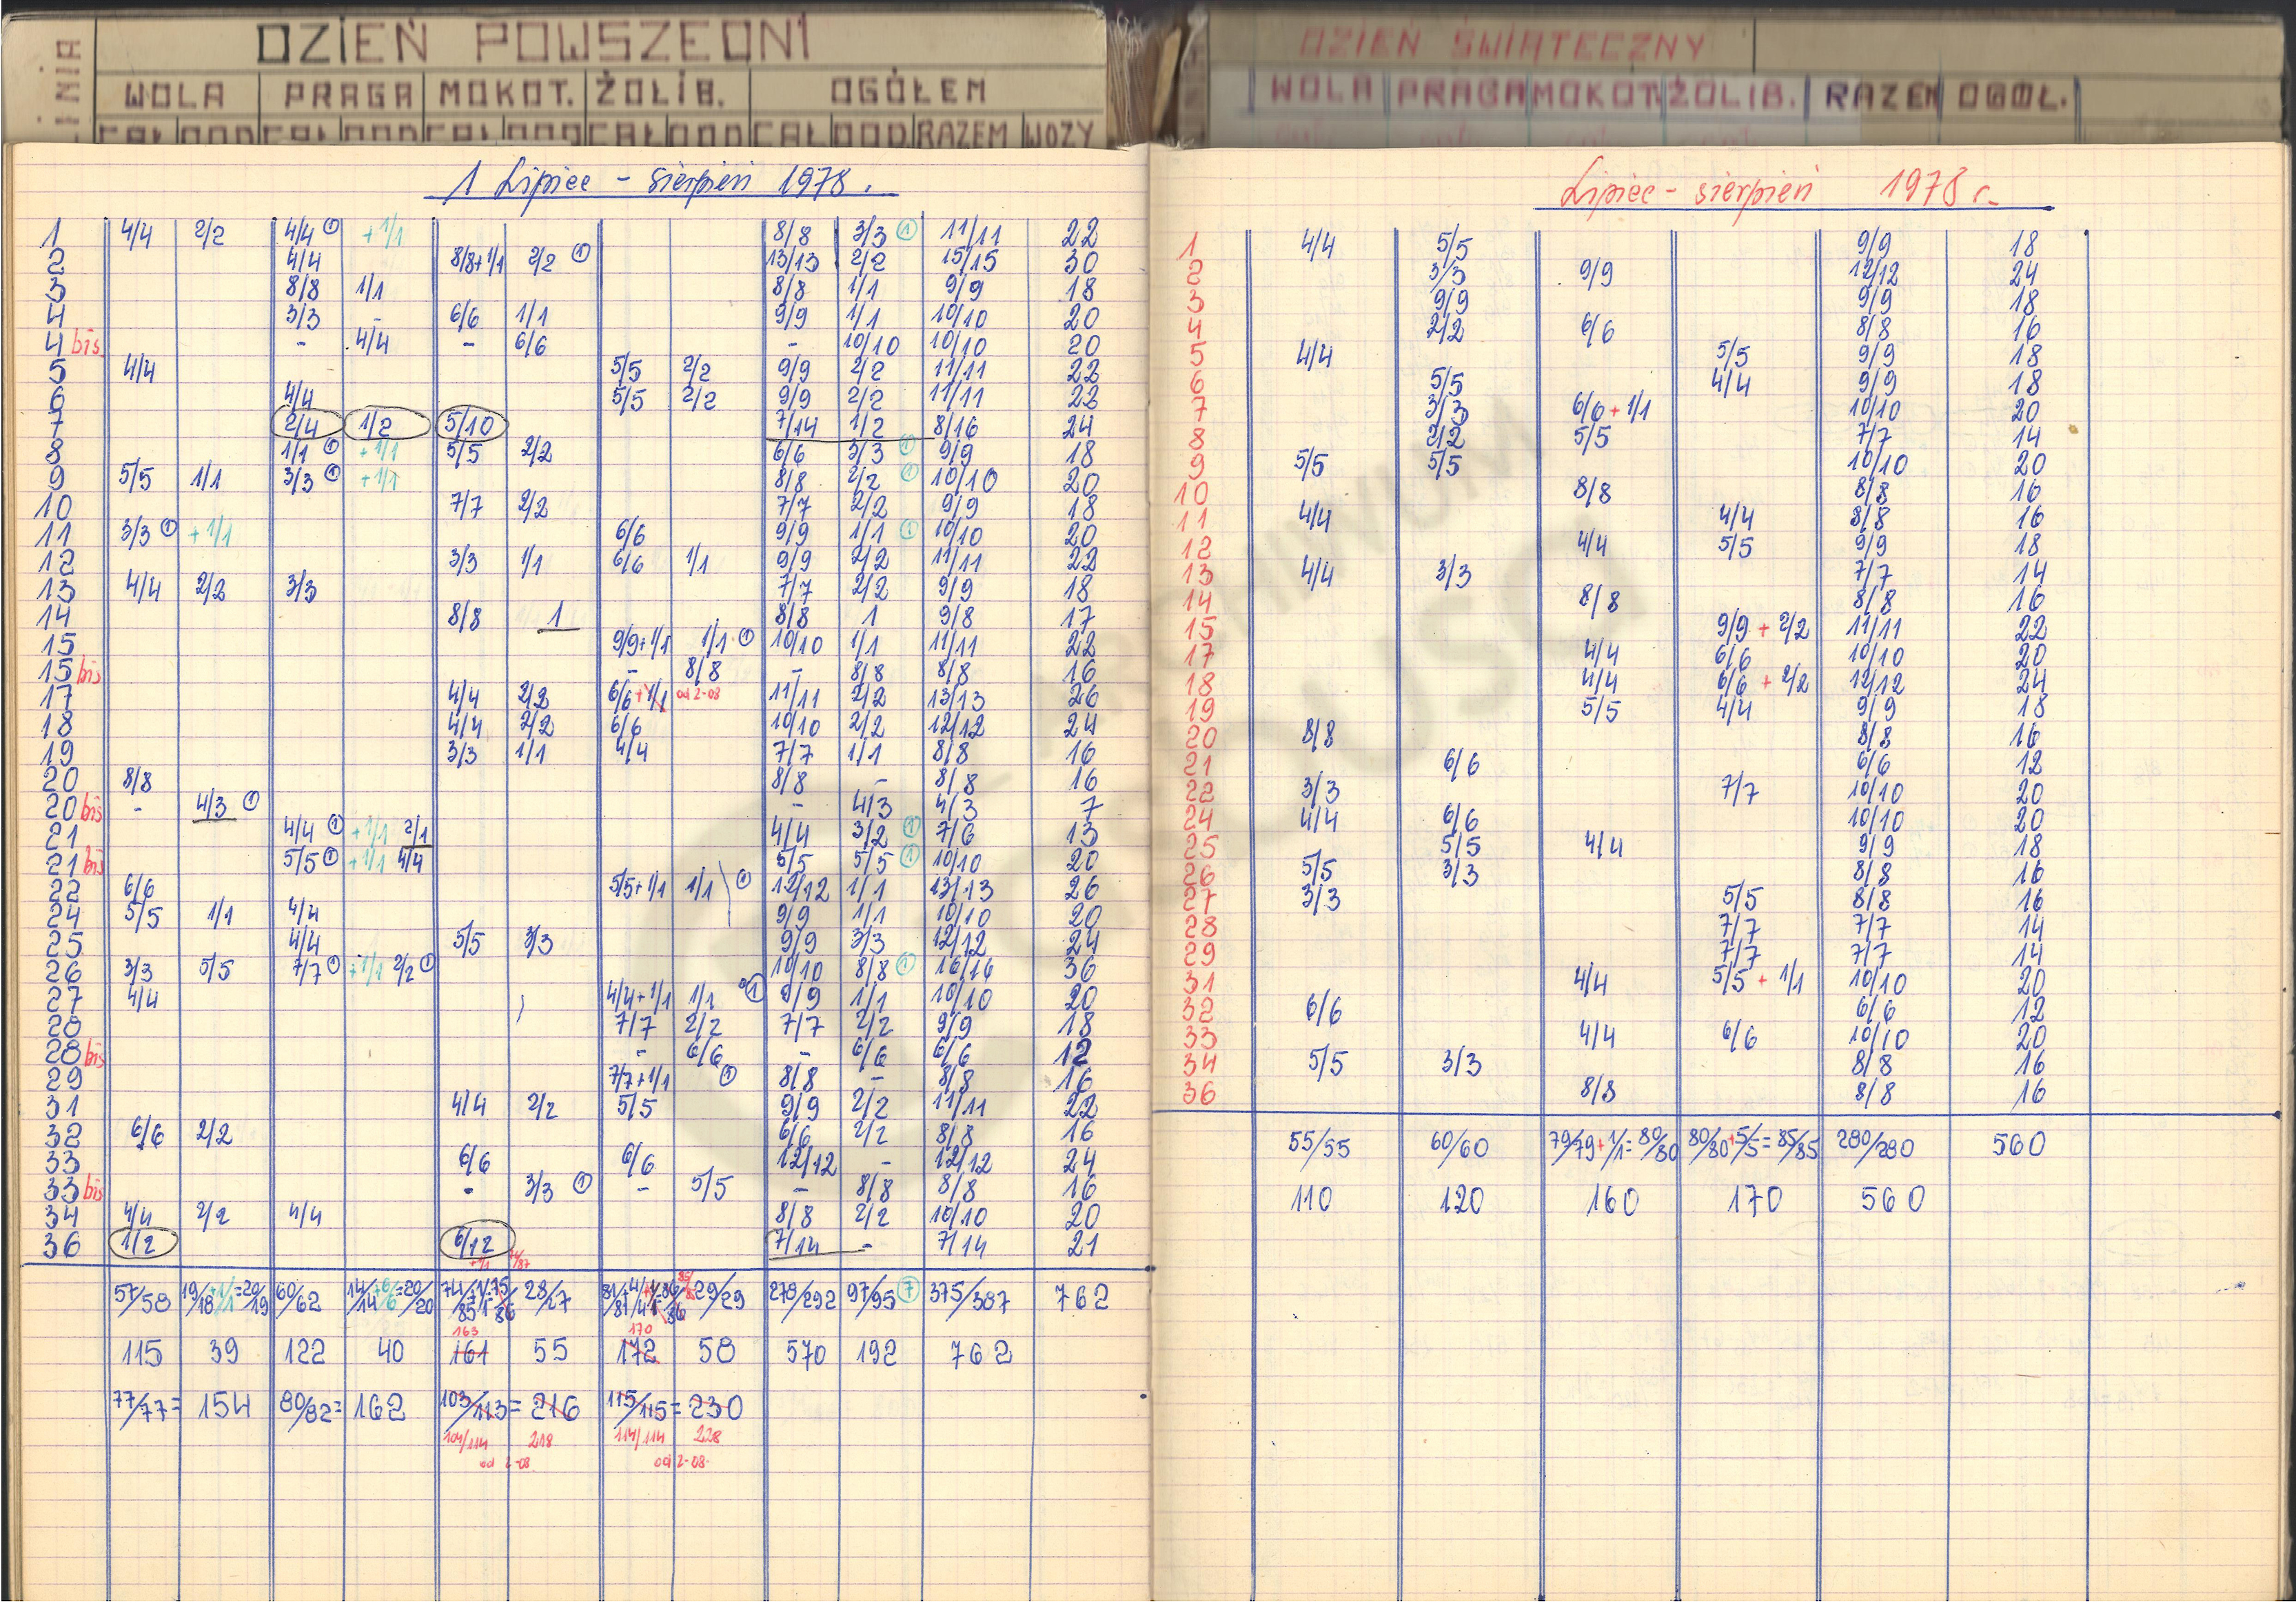 DZIEŃ POWSZEDNI
WOLA PRAGA MOKOT. ŻOLIB. OGÓŁEM
CAŁ DOD CAŁ DOD CAŁ DOD CAŁ DOD CAŁ DOD RAZEM WOZY
1 Lipiec - sierpień 1978.
1 4/4 2/2 4/4 ① +1/1 8/8 3/3 ① 11/11 22
2 4/4 8/8+1/1 2/2 ① 13/13 2/2 15/15 30
3 8/8 1/1 8/8 1/1 9/9 18
4 3/3 - 6/6 1/1 9/9 1/1 10/10 20
4 bis - 4/4 - 6/6 - 10/10 10/10 20
5 4/4 5/5 2/2 9/9 2/2 11/11 22
6 4/4 5/5 2/2 9/9 2/2 11/11 22
7 2/4 1/2 5/10 7/14 1/2 8/16 24
8 1/1 ① +1/1 5/5 2/2 6/6 3/3 ① 9/9 18
9 5/5 1/1 3/3 ① +1/1 8/8 2/2 ① 10/10 20
10 7/7 2/2 7/7 2/2 9/9 18
11 3/3 ① +1/1 6/6 9/9 1/1 ① 10/10 20
12 3/3 1/1 6/6 1/1 9/9 2/2 11/11 22
13 4/4 2/2 3/3 7/7 2/2 9/9 18
14 8/8 1 8/8 1 9/8 17
15 9/9+1/1 1/1 ① 10/10 1/1 11/11 22
15 bis - 8/8 - 8/8 8/8 16
17 4/4 2/2 6/6+1/1 od 2-08 11/11 2/2 13/13 26
18 4/4 2/2 6/6 10/10 2/2 12/12 24
19 3/3 1/1 4/4 7/7 1/1 8/8 16
20 8/8 8/8 - 8/8 16
20 bis - 4/3 ① - 4/3 4/3 7
21 4/4 ① +1/1 2/1 4/4 3/2 ① 7/6 13
21 bis 5/5 ① +1/1 4/4 5/5 5/5 ① 10/10 20
22 6/6 5/5+1/1 1/1 ① 12/12 1/1 13/13 26
24 5/5 1/1 4/4 9/9 1/1 10/10 20
25 4/4 5/5 3/3 9/9 3/3 12/12 24
26 3/3 5/5 7/7 ① +1/1 2/2 ① 10/10 8/8 ① 16/16 36
27 4/4 4/4+1/1 1/1 ① 9/9 1/1 10/10 20
28 7/7 2/2 7/7 2/2 9/9 18
28 bis - 6/6 - 6/6 6/6 12
29 7/7+1/1 ① 8/8 - 8/8 16
31 4/4 2/2 5/5 9/9 2/2 11/11 22
32 6/6 2/2 6/6 2/2 8/8 16
33 6/6 6/6 12/12 - 12/12 24
33 bis - 3/3 ① - 5/5 - 8/8 8/8 16
34 4/4 2/2 4/4 8/8 2/2 10/10 20
36 1/2 6/12 7/14 - 7/14 21
57/58 19/18+1/1=20/19 60/62 14/14+6/6=20/20 28/27 29/29 278/292 97/95 ⑦ 375/387 762
163 170
115 39 122 40 161 55 172 58 570 192 762
77/77= 154 80/82= 162 103/113= 216 115/115= 230
104/114 218 114/114 228
od 2-08 od 2-08.
DZIEŃ ŚWIĄTECZNY
WOLA PRAGA MOKOT. ŻOLIB. RAZEM OGÓŁ.
Lipiec - sierpień 1978 r.
1 4/4 5/5 9/9 18
2 3/3 9/9 12/12 24
3 9/9 9/9 18
4 2/2 6/6 8/8 16
5 4/4 5/5 9/9 18
6 5/5 4/4 9/9 18
7 3/3 6/6+1/1 10/10 20
8 2/2 5/5 7/7 14
9 5/5 5/5 10/10 20
10 8/8 8/8 16
11 4/4 4/4 8/8 16
12 4/4 5/5 9/9 18
13 4/4 3/3 7/7 14
14 8/8 8/8 16
15 9/9 + 2/2 11/11 22
17 4/4 6/6 10/10 20
18 4/4 6/6 + 2/2 12/12 24
19 5/5 4/4 9/9 18
20 8/8 8/8 16
21 6/6 6/6 12
22 3/3 7/7 10/10 20
24 4/4 6/6 10/10 20
25 5/5 4/4 9/9 18
26 5/5 3/3 8/8 16
27 3/3 5/5 8/8 16
28 7/7 7/7 14
29 7/7 7/7 14
31 4/4 5/5 + 1/1 10/10 20
32 6/6 6/6 12
33 4/4 6/6 10/10 20
34 5/5 3/3 8/8 16
36 8/8 8/8 16
55/55 60/60 79/79+1/1=80/80 80/80+5/5=85/85 280/280 560
110 120 160 170 560